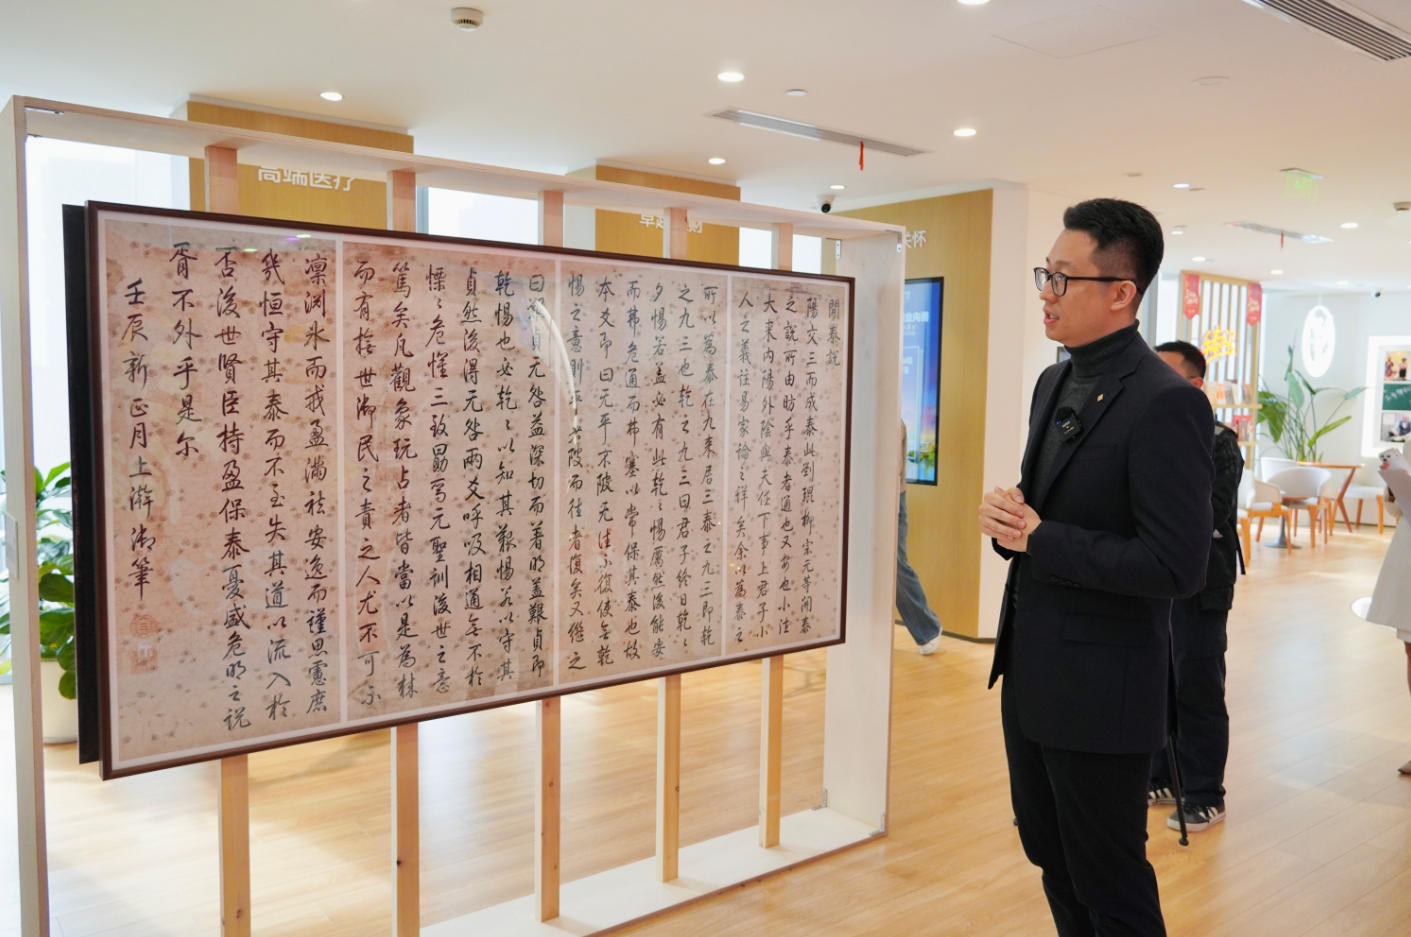 開泰説
陽交三而成泰此劉琨柳宗元等開泰
之説所由昉乎泰者通也又安也小往
大来内陽外陰與夫任下事上君子小
人之義註易家論之詳矣余以為泰之
所以為泰在九来居三泰之九三即乾
之九三也乾之九三曰君子終日乾〻
夕惕若盖必有此乾〻惕厲然後能安
而弗危通而弗塞以常保其泰也故
本爻即曰无平不陂无往不復使無乾
惕之意則平者陂而往者復矣又継之
曰艱貞无咎益深切而著明盖艱貞即
乾惕也必乾〻以知其艱惕若以守其
貞然後得无咎兩爻呼吸相通無不於
慄〻危懼三致勗焉元聖訓後世之意
篤矣凡觀象玩占者皆當以是為
而有撫世御民之責之人尤不可不
凛淵氷而戒盈滿祛安逸而謹思慮庶
幾恒守其泰而不至失其道以流入於
否後世賢臣持盈保泰憂盛危明之説
胥不外乎是尔
壬辰新正月上澣御筆
高端医疗
关怀